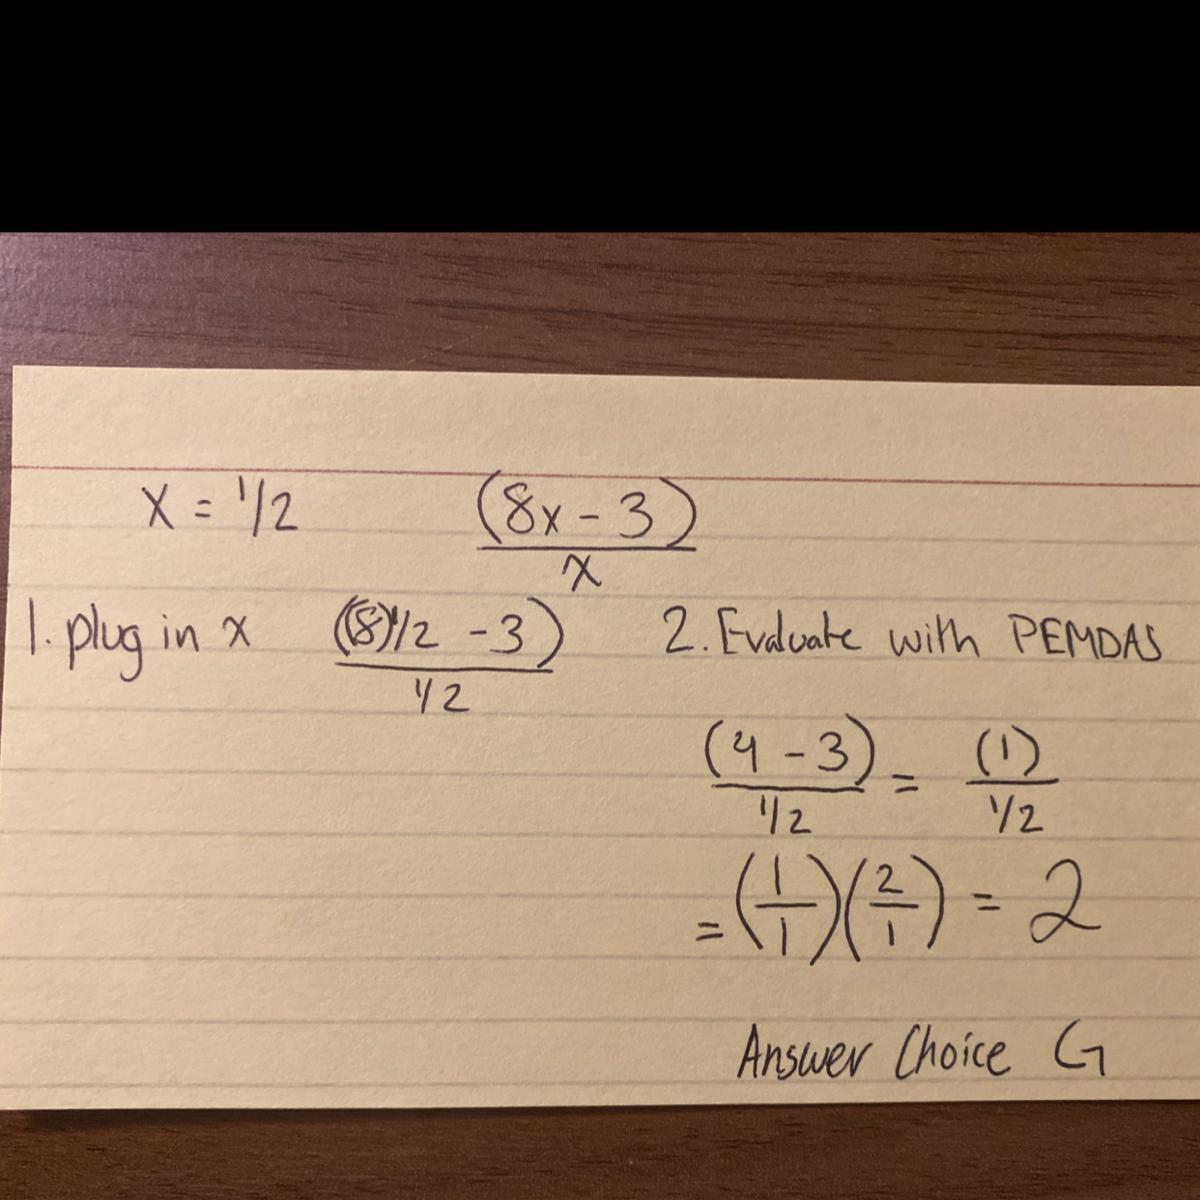 x = 1/2
(8x - 3)
x
1. plug in x
((8)1/2 - 3)
1/2
2. Evaluate with PEMDAS
(4 - 3) = (1)
1/2 1/2
= (1/1)(2/1) = 2
Answer Choice G